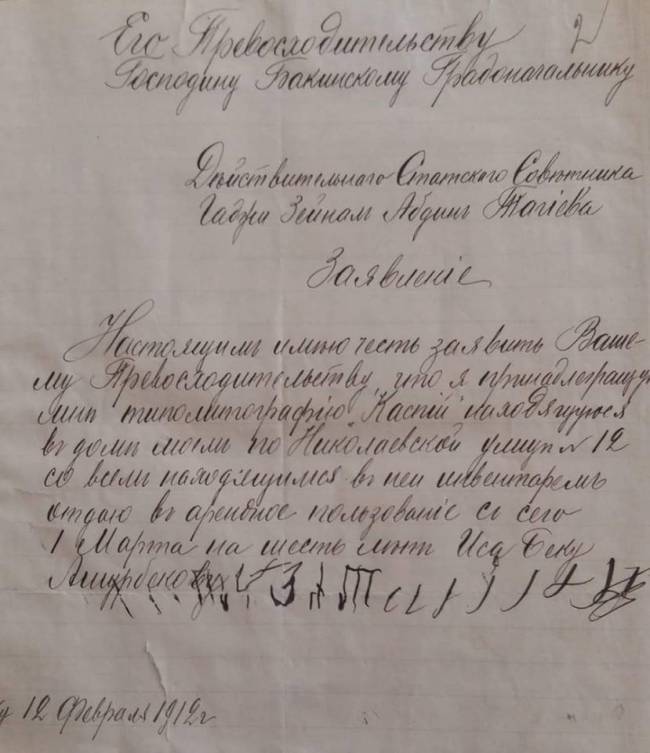 2
Его Превосходительству
Господину Бакинскому Градоначальнику
Дѣйствительнаго Статскаго Совѣтника
Гаджи Зейналъ Абдинъ Тагіева
Заявленіе
Настоящимъ имѣю честь заявить Ваше-
му Превосходительству, что я принадлежащую
мнѣ типолитографію "Каспій" находящуюся
въ домѣ моемъ по Николаевской улицѣ № 12
со всемъ находящимся въ ней инвентаремъ
отдаю въ арендное пользованіе съ сего
1 Марта на шесть лѣтъ Иса Беку
Ашурбекову
12 Февраля 1912 г